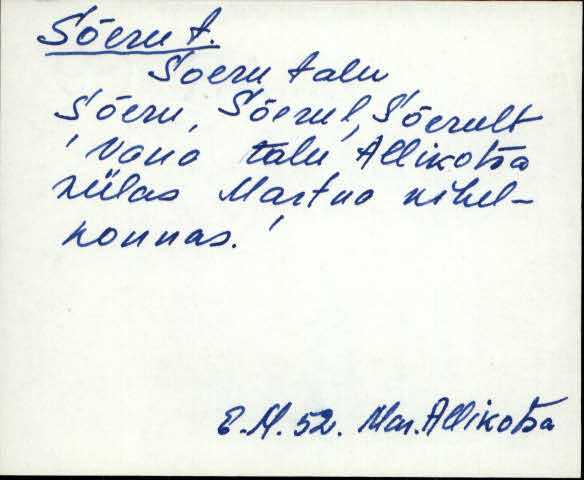 Sõeru t.
Sõeru talu
Sõeru, Sõerul, Sõerult
'Vana talu Allikotsa
külas Martna kihel-
konnas.'
E.M. 52. Mar. Allikotsa